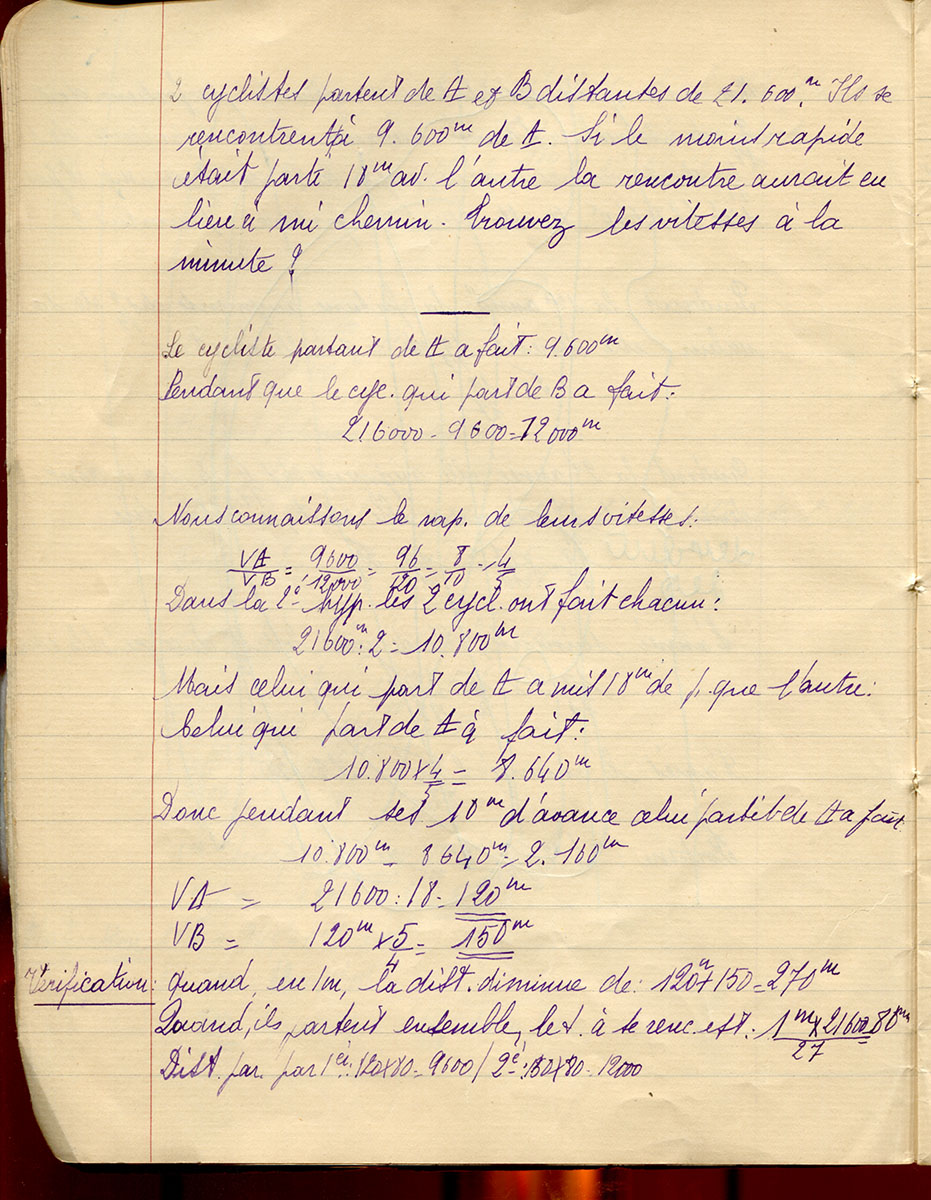 2 cyclistes partent de A et B distantes de 21.600.m Ils se
rencontrent à 9.600m de A. Si le moins rapide
était parti 18m av. l'autre la rencontre aurait eu
lieu à mi chemin. Trouvez les vitesses à la
minute ?
Le cycliste partant de A a fait: 9.600m
Pendant que le cyc. qui part de B a fait:
216000 - 9600 = 12000m
Nous connaissons le rap. de leurs vitesses:
VA/VB = 9600/12000 = 96/120 = 8/10 = 4/5
Dans la 2e hyp. les 2 cycl. ont fait chacun:
21600m : 2 = 10.800m
Mais celui qui part de A a mis 18m de p. que l'autre:
Celui qui part de A à fait:
10.800 x 4/5 = 8.640m
Donc pendant ses 18m d'avance celui partit de A a fait
10.800m - 8640m = 2.160m
VA = 21600 : 18 = 120m
VB = 120m x 5/4 = 150m
Vérification: Quand, en 1m, la dist. diminue de: 120m + 150 = 270m
Quand, ils partent ensemble, le t. à se renc. est: 1m x 21600/27 = 80m
Dist. par. par 1er: 120 x 80 = 9600 / 2e: 150 x 80 = 12000